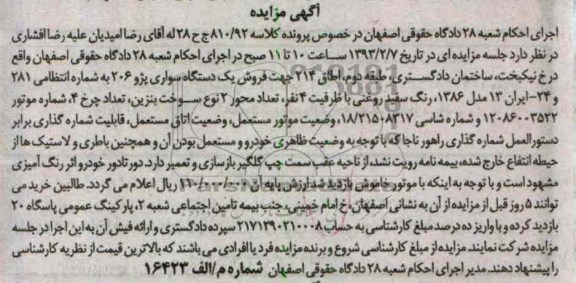 آگهی مزایده
اجرای احکام شعبه ۲۸ دادگاه حقوقی اصفهان در خصوص پرونده کلاسه ۸۱۰/۹۲ ج ح ۲۸ له آقای رضا امیدیان علیه رضا افشاری
در نظر دارد جلسه مزایده ای در تاریخ ۱۳۹۳/۲/۷ ساعت ۱۰ تا ۱۱ صبح در اجرای احکام شعبه ۲۸ دادگاه حقوقی اصفهان واقع
در خ نیکبخت، ساختمان دادگستری، طبقه دوم، اطاق ۲۱۴ جهت فروش یک دستگاه سواری پژو ۲۰۶ به شماره انتظامی ۲۸۱
و ۲۴-ایران ۱۳ مدل ۱۳۸۶، رنگ سفید روغنی با ظرفیت ۴ نفر، تعداد محور ۲ نوع سوخت بنزین، تعداد چرخ ۴، شماره موتور
۱۲۰۸۶۰۰۳۵۲۲ و شماره شاسی ۱۸/۲۱۵۰۸۳۱۷، وضعیت موتور مستعمل، وضعیت اتاق مستعمل، قابلیت شماره گذاری برابر
دستورالعمل شماره گذاری راهور ناجا که با توجه به وضعیت ظاهری خودرو و مستعمل بودن آن و همچنین باطری و لاستیک ها از
حیطه انتفاع خارج شده، بیمه نامه رویت نشد، از ناحیه عقب سمت چپ گلگیر بازسازی و تعمیر دارد. دور تا دور خودرو اثر رنگ آمیزی
مشهود است و با توجه به اینکه با موتور خاموش بازدید شد ارزش پایه آن ریال اعلام می گردد. طالبین خرید می
توانند ۵ روز قبل از مزایده از آن به نشانی اصفهان، خ امام خمینی، جنب بیمه تامین اجتماعی شعبه ۲، پارکینگ عمومی پاسگاه ۲۰
بازدید کرده و با واریز ده درصد مبلغ کارشناسی به حساب ۲۱۷۱۲۹۰۲۱۰۰۰۸ سپرده دادگستری و ارائه فیش آن به این اجرا در جلسه
مزایده شرکت نمایند. مزایده از مبلغ کارشناسی شروع و برنده مزایده فرد یا افرادی می باشند که بالاترین قیمت از نظریه کارشناسی
را پیشنهاد دهند. مدیر اجرای احکام شعبه ۲۸ دادگاه حقوقی اصفهان شماره م/الف ۱۶۴۲۳